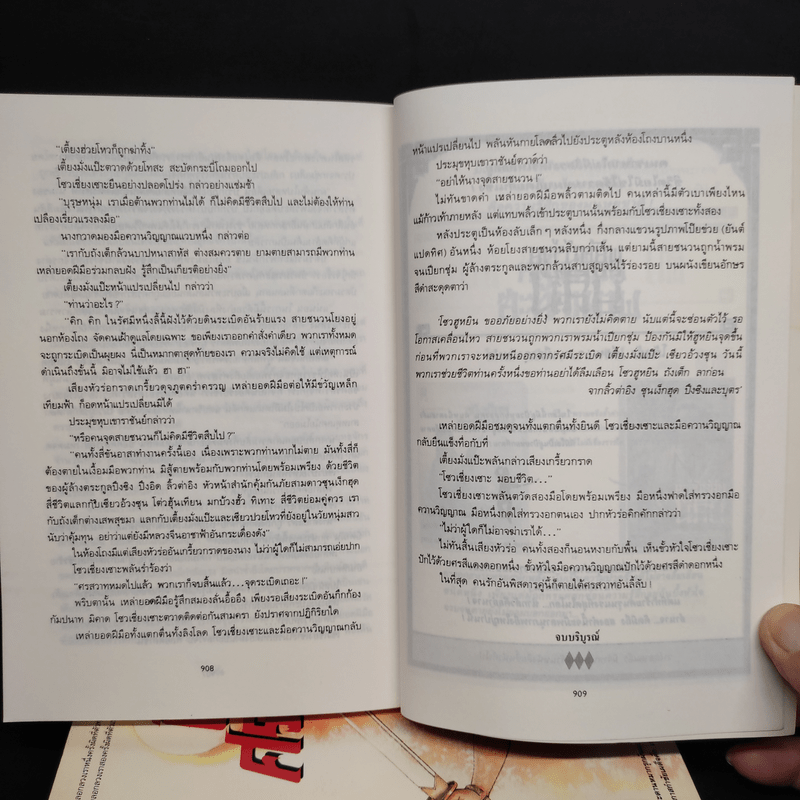 "เตี้ยงฮ่วยโหวก็ถูกฆ่าทิ้ง"
เตี้ยงมั่งแป๊ะตวาดด้วยโทสะ สะบัดกระบี่โถมออกไป
โซวเซี่ยงเซาะยืนอย่างปลอดโปร่ง กล่าวอย่างแช่มช้า
"บุรุษหนุ่ม เราเมื่อต้านพวกท่านไม่ได้ ก็ไม่คิดมีชีวิตสืบไป และไม่ต้องให้ท่าน
เปลืองเรี่ยวแรงลงมือ"
นางกวาดมองมือควานวิญญาณแวบหนึ่ง กล่าวต่อ
"เรากับถังเต็กล้วนบาปหนาสาหัส ต่างสมควรตาย ยามตายสามารถมีพวกท่าน
เหล่ายอดฝีมือร่วมกลบฝัง รู้สึกเป็นเกียรติอย่างยิ่ง"
เตี้ยงมั่งแป๊ะหน้าแปรเปลี่ยนไป กล่าวว่า
"ท่านว่าอะไร ?"
"คิก คิก ในรัศมีหนึ่งลี้นี้ฝังไว้ด้วยดินระเบิดอันร้ายแรง สายชนวนโยงอยู่
นอกห้องโถง จัดคนเฝ้าดูแลโดยเฉพาะ ขอเพียงเราออกคำสั่งคำเดียว พวกเราทั้งหมด
จะถูกระเบิดเป็นผุยผง นี่เป็นหมากตาสุดท้ายของเรา ความจริงไม่คิดใช้ แต่เหตุการณ์
ดำเนินถึงขั้นนี้ มิอาจไม่ใช้แล้ว ฮา ฮา"
เสียงหัวร่อกราดเกรี้ยวดุจภูตคร่ำครวญ เหล่ายอดฝีมือต่อให้มีขวัญเหล็ก
เทียมฟ้า ก็อดหน้าแปรเปลี่ยนมิได้
ประมุขหุบเขาราชันย์กล่าวว่า
"หรือคนจุดสายชนวนก็ไม่คิดมีชีวิตสืบไป ?"
"คนทั้งสี่ขันอาสาทำงานครั้งนี้เอง เนื่องเพราะพวกท่านหากไม่ตาย มันทั้งสี่ก็
ต้องตายในเงื้อมมือพวกท่าน มิสู้ตายพร้อมกับพวกท่านโดยพร้อมเพรียง ด้วยชีวิต
ของผู้ล้างตระกูลปึงซิง ปึงอิด ลิ้วต่าอิง หัวหน้าสำนักคุ้มกันภัยสามดาวซุนเง็กฮุด
สี่ชีวิตแลกกับเซียวอ้วงซุน โต่วฮุ้นเทียน มกบ้วงฮั้ว ทิเทาะ สี่ชีวิตย่อมคู่ควร เรา
กับถังเต็กต่างเสพสุขมา แลกกับเตี้ยงมั่งแป๊ะและเซียวปวยโหวที่ยังอยู่ในวัยหนุ่มสาว
นับว่าคุ้มทุน อย่าว่าแต่ยังมีหลวงจีนอาชาฟ้าอันกระเดื่องดัง"
ในห้องโถงมีแต่เสียงหัวร่ออันเกรี้ยวกราดของนาง ไม่ว่าผู้ใดก็ไม่สามารถเอ่ยปาก
โซวเซี่ยงเซาะพลันร่ำร้องว่า
"ศรสวาทหมดไปแล้ว พวกเราก็จบสิ้นแล้ว...จุดระเบิดเถอะ !"
พริบตานั้น เหล่ายอดฝีมือรู้สึกสมองลั่นอื้ออึง เพียงรอเสียงระเบิดอันกึกก้อง
กัมปนาท มิคาด โซวเซี่ยงเซาะตวาดติดต่อกันสามครา ยังปราศจากปฏิกิริยาใด
เหล่ายอดฝีมือทั้งแตกตื่นทั้งลิงโลด โซวเซี่ยงเซาะและมือควานวิญญาณกลับ
908
หน้าแปรเปลี่ยนไป พลันหันกายโลดลิ่วไปยังประตูหลังห้องโถงบานหนึ่ง
ประมุขหุบเขาราชันย์ตวาดว่า
"อย่าให้นางจุดสายชนวน !"
ไม่ทันขาดคำ เหล่ายอดฝีมือพลิ้วตามติดไป คนเหล่านี้มีตัวเบาเพียงไหน
แม้ก้าวเท้าภายหลัง แต่แทบพลิ้วเข้าประตูบานนั้นพร้อมกับโซวเซี่ยงเซาะทั้งสอง
หลังประตูเป็นห้องลับเล็ก ๆ หลังหนึ่ง กึ่งกลางแขวนรูปภาพโป๊ยข่วย (ยันต์
แปดทิศ) อันหนึ่ง ห้อยโยงสายชนวนสิบกว่าเส้น แต่ยามนี้สายชนวนถูกน้ำพรม
จนเปียกชุ่ม ผู้ล้างตระกูลและพวกล้วนสาบสูญจนไร้ร่องรอย บนผนังเขียนอักษร
สีดำสะดุดตาว่า
'โซวฮูหยิน ขออภัยอย่างยิ่ง พวกเรายังไม่คิดตาย นับแต่นี้จะซ่อนตัวไว้ รอ
โอกาสเคลื่อนไหว สายชนวนถูกพวกเราพรมน้ำเปียกชุ่ม ป้องกันมิให้ฮูหยินจุดขึ้น
ก่อนที่พวกเราจะหลบหนีออกจากรัศมีระเบิด เตี้ยงมั่งแป๊ะ เซียวอ้วงซุน วันนี้
พวกเราช่วยชีวิตท่านครั้งหนึ่งขอท่านอย่าได้ลืมเลือน โซวฮูหยิน ถังเต็ก ลาก่อน
จากลิ้วต่าอิง ซุนเง็กฮุด ปึงซิงและบุตร'
เหล่ายอดฝีมือชมดูจนทั้งแตกตื่นทั้งยินดี โซวเซี่ยงเซาะและมือควานวิญญาณ
กลับยืนแข็งทื่อกับที่
เตี้ยงมั่งแป๊ะพลันกล่าวเสียงเกรี้ยวกราด
"โซวเซี่ยงเซาะ มอบชีวิต..."
โซวเซี่ยงเซาะพลันตวัดสองมือโดยพร้อมเพรียง มือหนึ่งฟาดใส่ทรวงอกมือ
ควานวิญญาณ มือหนึ่งกดใส่ทรวงอกตนเอง ปากหัวร่อคิกคักกล่าวว่า
"ไม่ว่าผู้ใดก็ไม่อาจฆ่าเราได้..."
ไม่ทันสิ้นเสียงหัวร่อ คนทั้งสองก็นอนหงายกับพื้น เห็นขั้วหัวใจโซวเซี่ยงเซาะ
ปักไว้ด้วยศรสีแดงดอกหนึ่ง ขั้วหัวใจมือควานวิญญาณปักไว้ด้วยศรสีดำดอกหนึ่ง
ในที่สุด คนรักอันพิสดารคู่นี้ก็ตายใต้ศรสวาทอันลี้ลับ !
จบบริบูรณ์
909